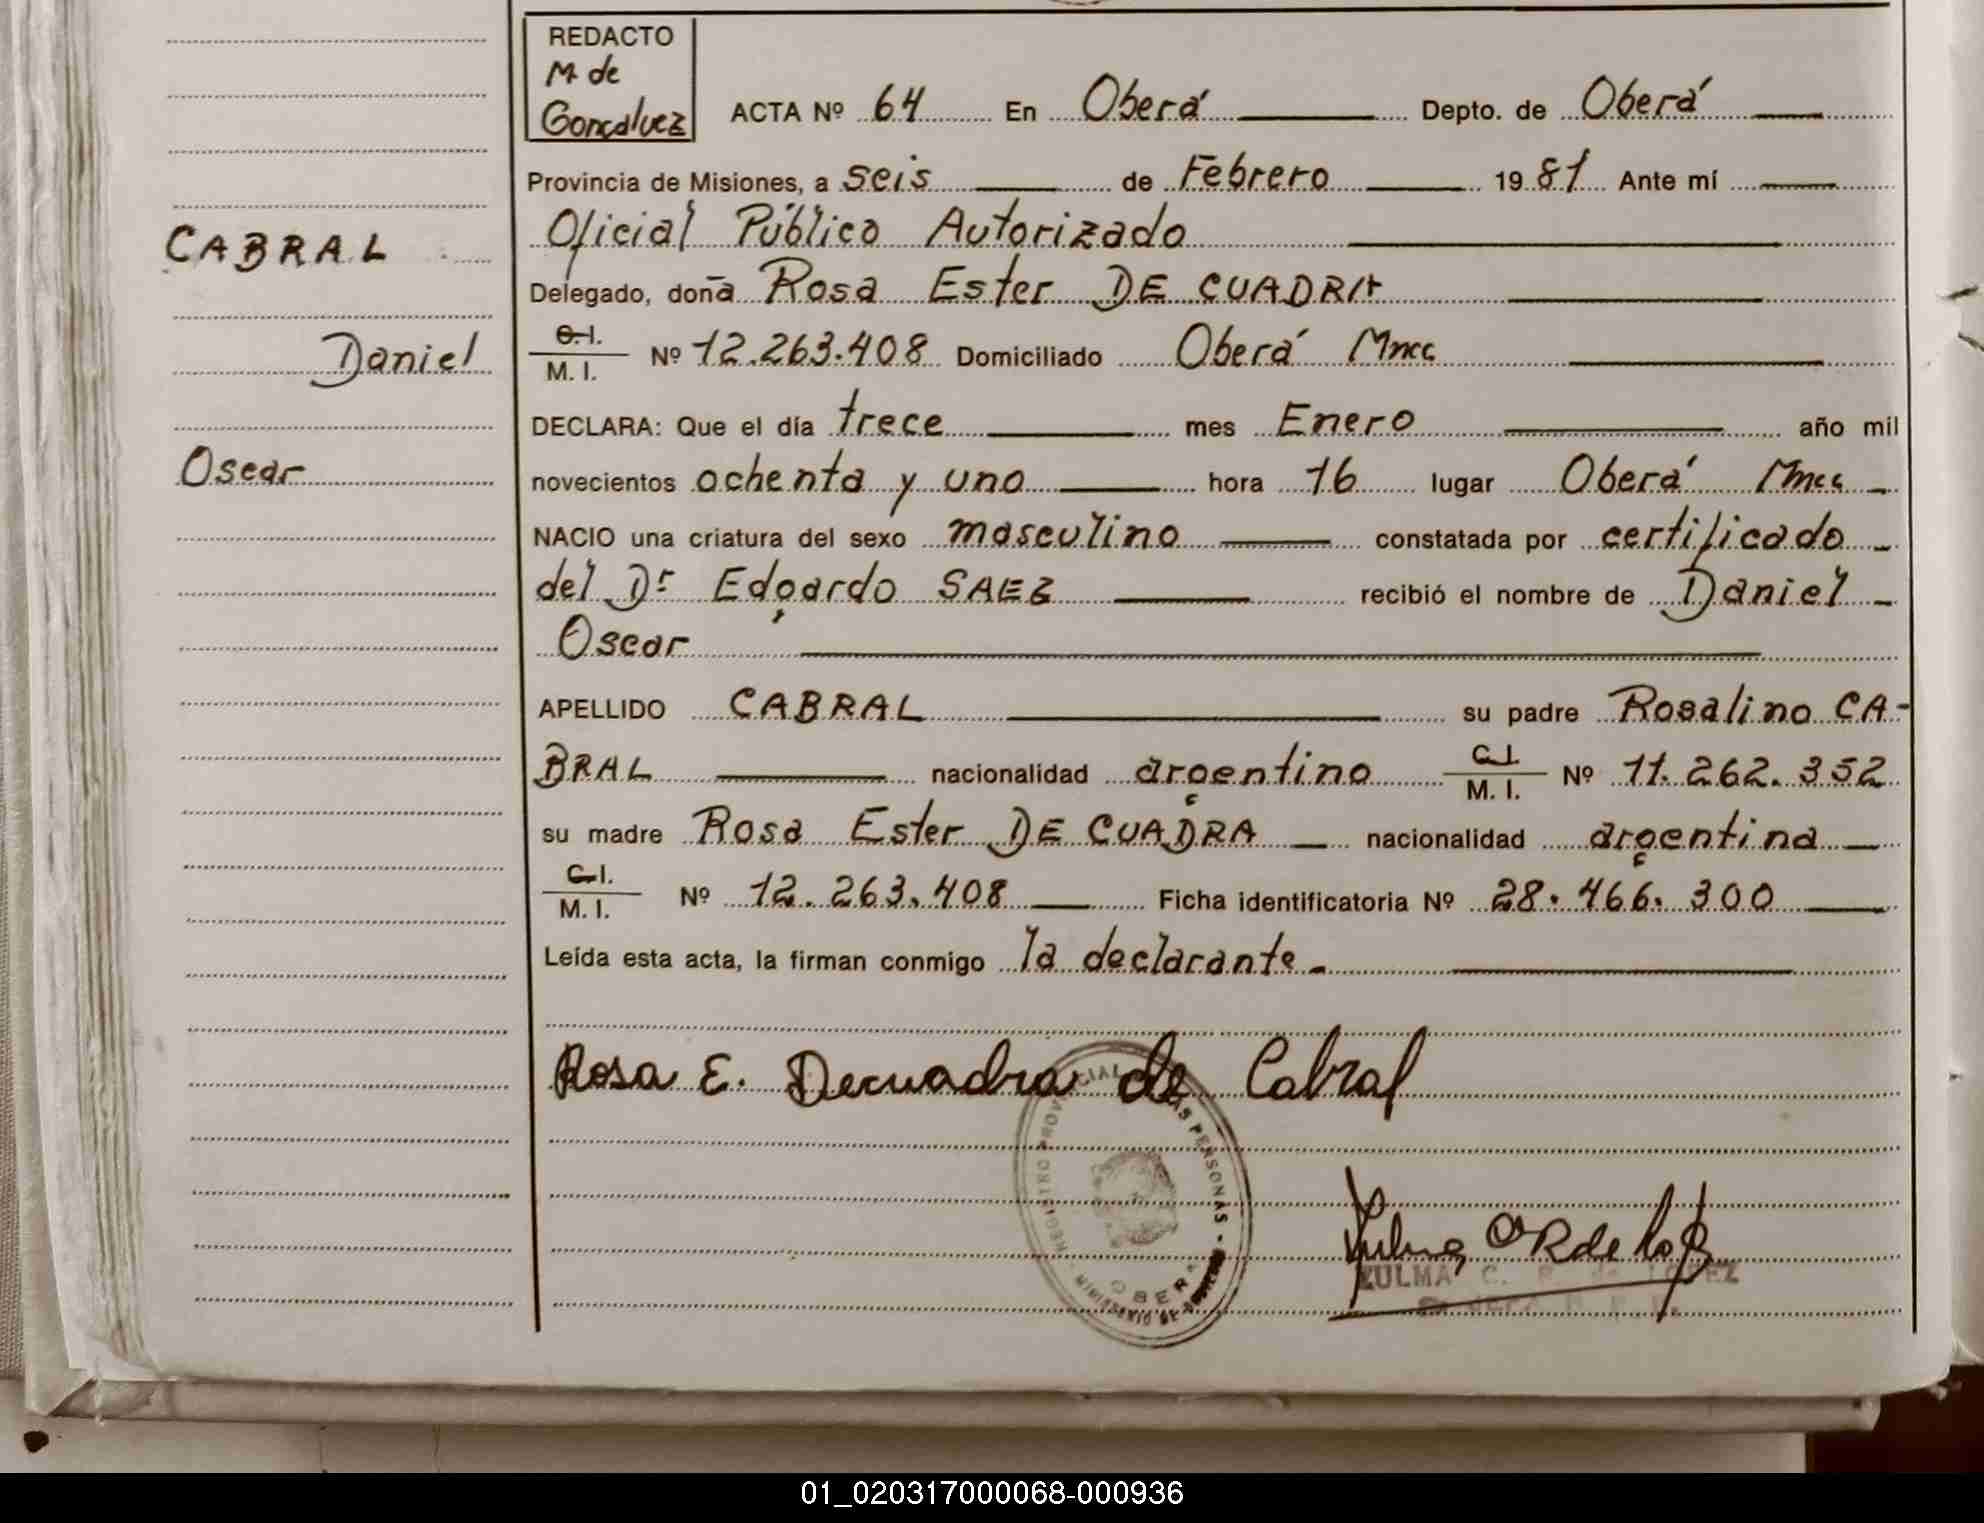 REDACTO
M de
Gonçalvez
ACTA Nº 64 En Oberá Depto. de Oberá
Provincia de Misiones, a seis de Febrero 1981 Ante mí
Oficial Público Autorizado
CABRAL
Delegado, doña Rosa Ester DE CUADRA
C.I.
M. I. Nº 12.263.408 Domiciliado Oberá Mnes
Daniel
DECLARA: Que el día trece mes Enero año mil
Oscar
novecientos ochenta y uno hora 16 lugar Oberá Mnes
NACIO una criatura del sexo masculino constatada por certificado
del Dr Edgardo SAEZ recibió el nombre de Daniel
Oscar
APELLIDO CABRAL su padre Rosalino CA-
BRAL nacionalidad argentino C.I. M. I. Nº 11.262.352
su madre Rosa Ester DE CUADRA nacionalidad argentina
C.I.
M. I. Nº 12.263.408 Ficha identificatoria Nº 28.466.300
Leída esta acta, la firman conmigo la declarante
Rosa E. Decuadra de Cabral
REGISTRO PROVINCIAL DE LAS PERSONAS
OBERA
ZULMA C. R. de LOPEZ
01_020317000068-000936